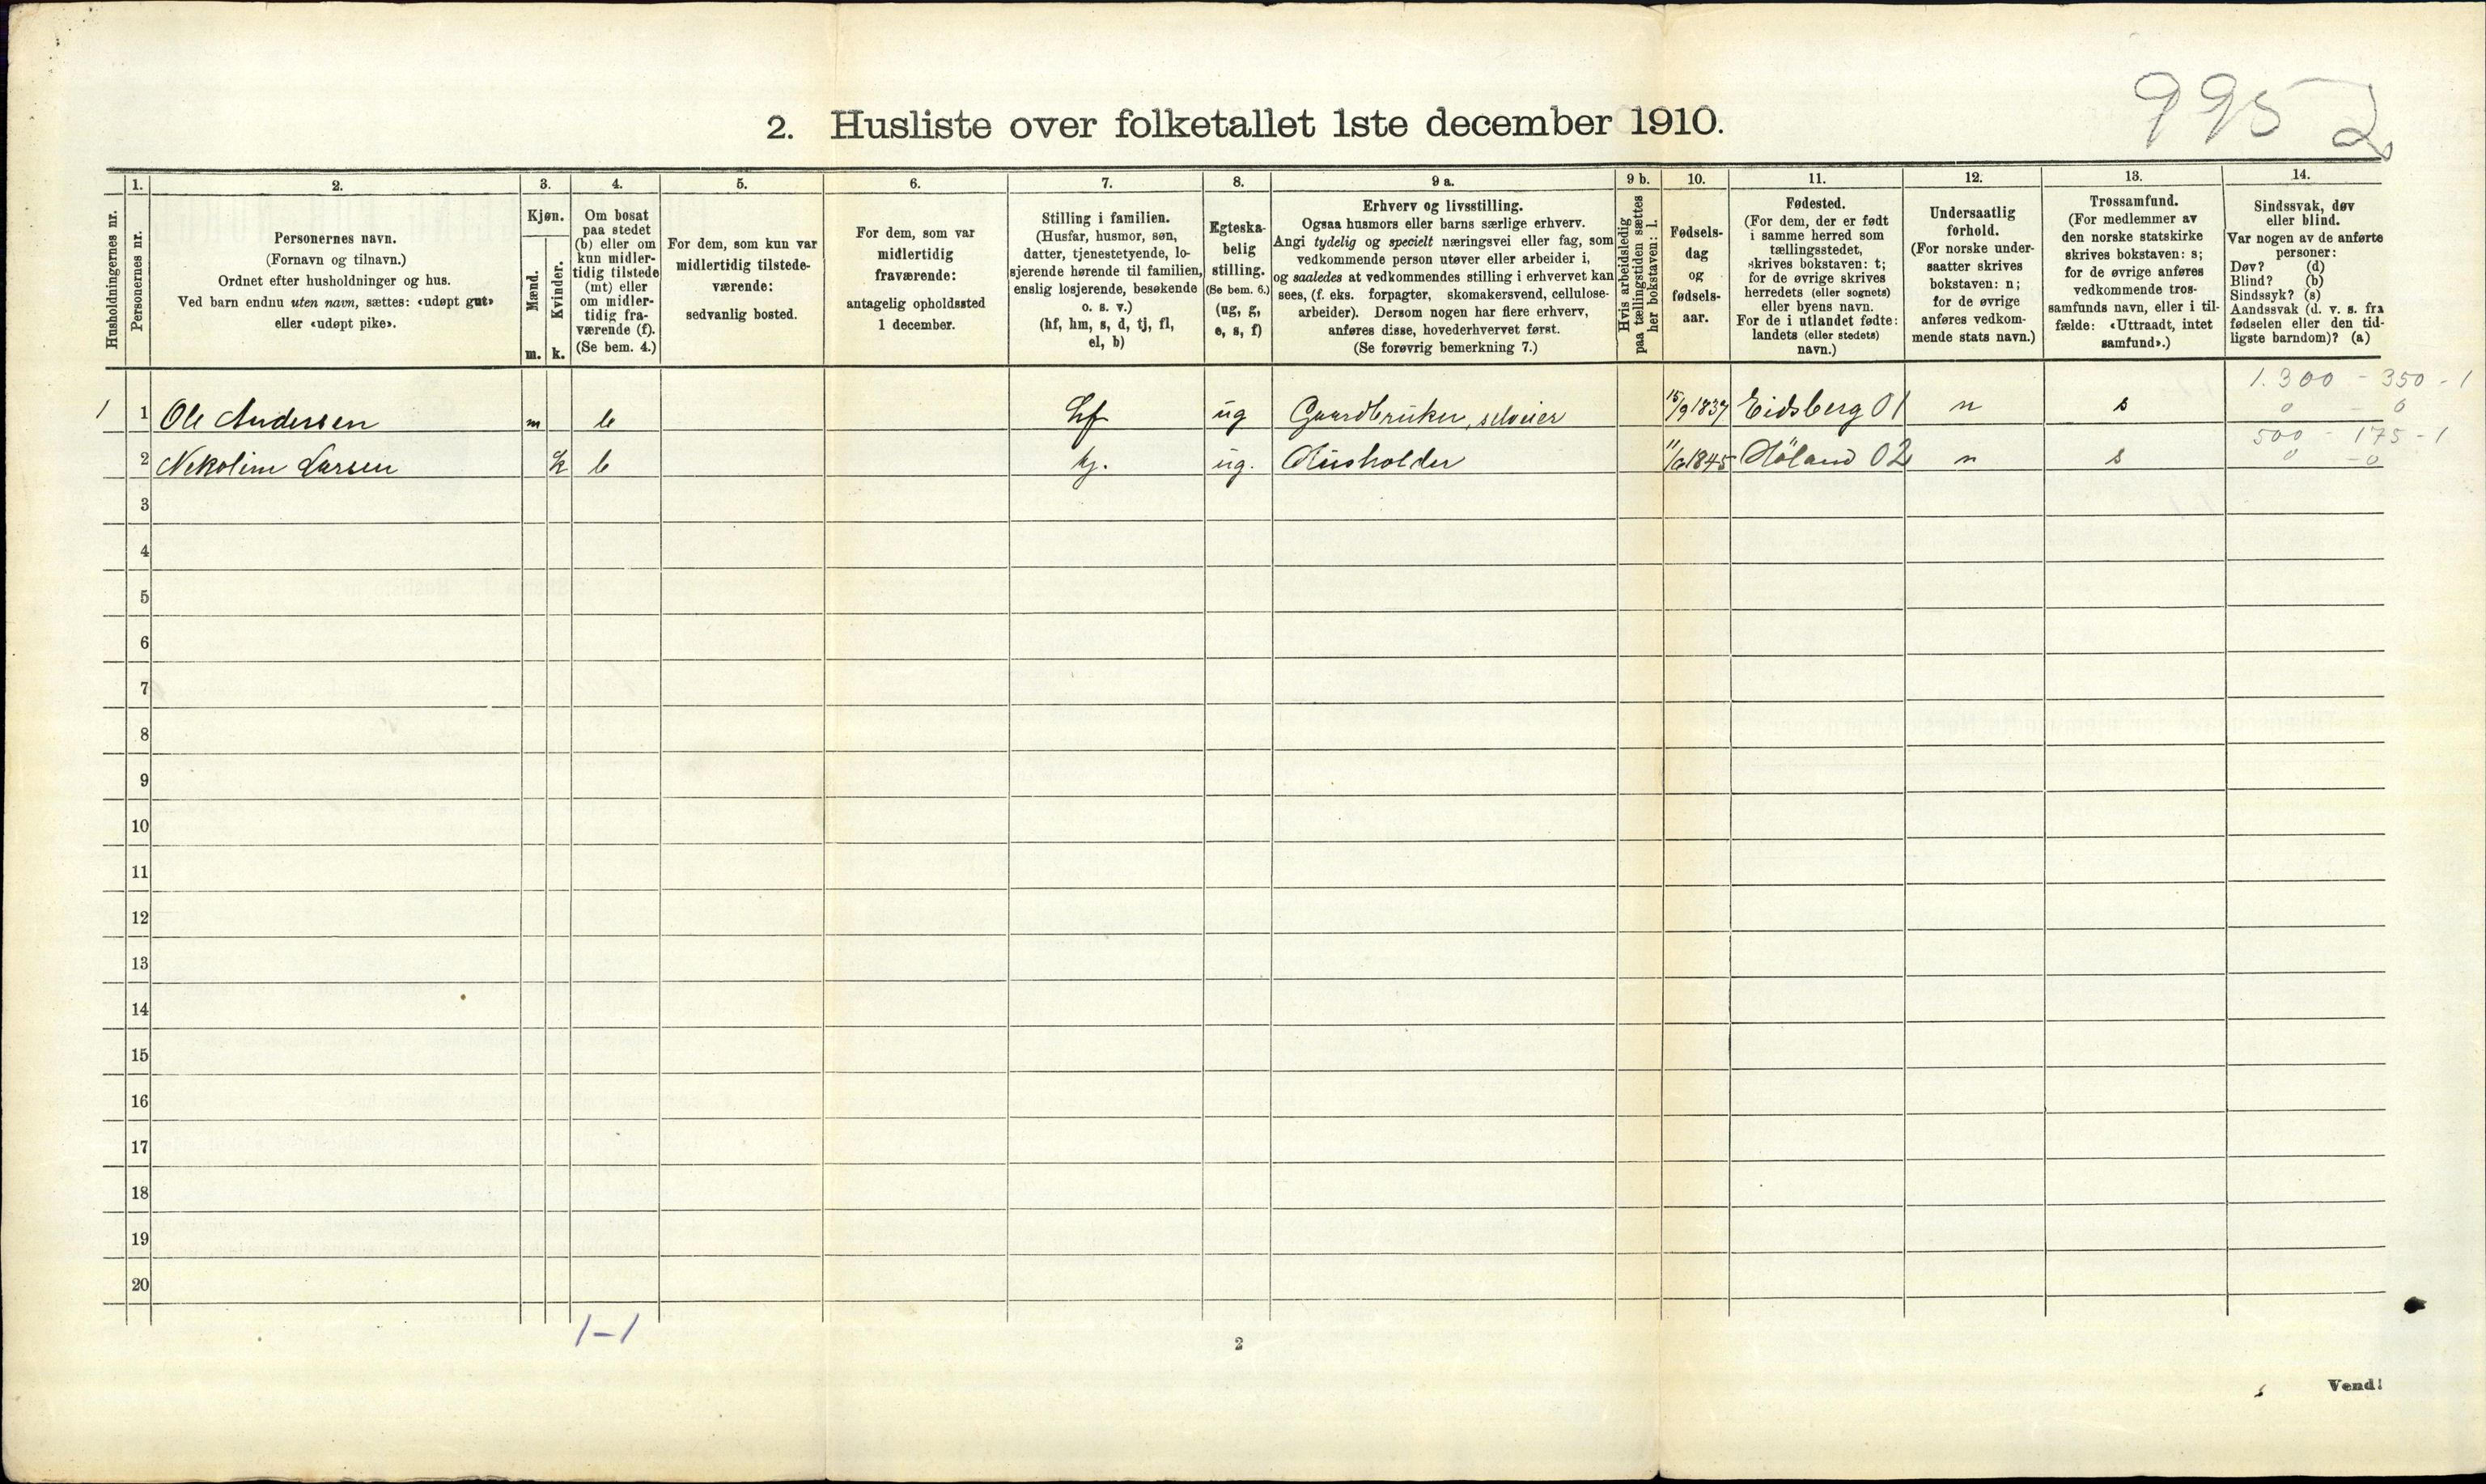 995 2
2. Husliste over folketallet 1ste december 1910.
1. 2. 3. 4. 5. 6. 7. 8. 9 a. 9 b. 10. 11. 12. 13. 14.
Husholdningernes nr.
Personernes nr.
Personernes navn.
(Fornavn og tilnavn.)
Ordnet efter husholdninger og hus.
Ved barn endnu uten navn, sættes: «udøpt gut»
eller «udøpt pike».
Kjøn.
Mænd.
Kvinder.
m. k.
Om bosat
paa stedet
(b) eller om
kun midler-
tidig tilstede
(mt) eller
om midler-
tidig fra-
værende (f).
(Se bem. 4.)
For dem, som kun var
midlertidig tilstede-
værende:
sedvanlig bosted.
For dem, som var
midlertidig
fraværende:
antagelig opholdssted
1 december.
Stilling i familien.
(Husfar, husmor, søn,
datter, tjenestetyende, lo-
sjerende hørende til familien,
enslig losjerende, besøkende
o. s. v.)
(hf, hm, s, d, tj, fl,
el, b)
Egteska-
belig
stilling.
(Se bem. 6.)
(ug, g,
e, s, f)
Erhverv og livsstilling.
Ogsaa husmors eller barns særlige erhverv.
Angi tydelig og specielt næringsvei eller fag, som
vedkommende person utøver eller arbeider i,
og saaledes at vedkommendes stilling i erhvervet kan
sees, (f. eks. forpagter, skomakersvend, cellulose-
arbeider). Dersom nogen har flere erhverv,
anføres disse, hovederhvervet først.
(Se forøvrig bemerkning 7.)
Hvis arbeidsledig
paa tællingstiden sættes
her bokstaven: l.
Fødsels-
dag
og
fødsels-
aar.
Fødested.
(For dem, der er født
i samme herred som
tællingsstedet,
skrives bokstaven: t;
for de øvrige skrives
herredets (eller sognets)
eller byens navn.
For de i utlandet fødte:
landets (eller stedets)
navn.)
Undersaatlig
forhold.
(For norske under-
saatter skrives
bokstaven: n;
for de øvrige
anføres vedkom-
mende stats navn.)
Trossamfund.
(For medlemmer av
den norske statskirke
skrives bokstaven: s;
for de øvrige anføres
vedkommende tros-
samfunds navn, eller i til-
fælde: «Uttraadt, intet
samfund».)
Sindssvak, døv
eller blind.
Var nogen av de anførte
personer:
Døv? (d)
Blind? (b)
Sindssyk? (s)
Aandssvak (d. v. s. fra
fødselen eller den tid-
ligste barndom)? (a)
1.300 - 350 - 1
1 1 Ole Andersen m b hf ug Gaardbruker, selveier 15/9 1837 Eidsberg 01 n s 0 - 0
500 - 175 - 1
2 Nekoline Larsen k b tj. ug. Husholder 11/6 1845 Höland 02 n s 0 - 0
3
4
5
6
7
8
9
10
11
12
13
14
15
16
17
18
19
20
1-1
2
Vend!